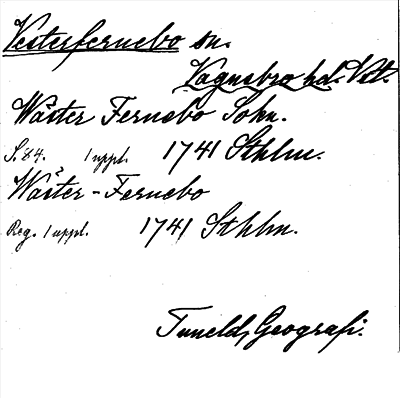 Vesterfernebo sn.
Vagnsbro hd. Vstm.
Wäster Fernebo Sokn.
S. 84. 1 uppl. 1741 Sthlm.
Wäster-Fernebo
Reg. 1 uppl. 1741 Sthlm.
Tuneld, Geografi.